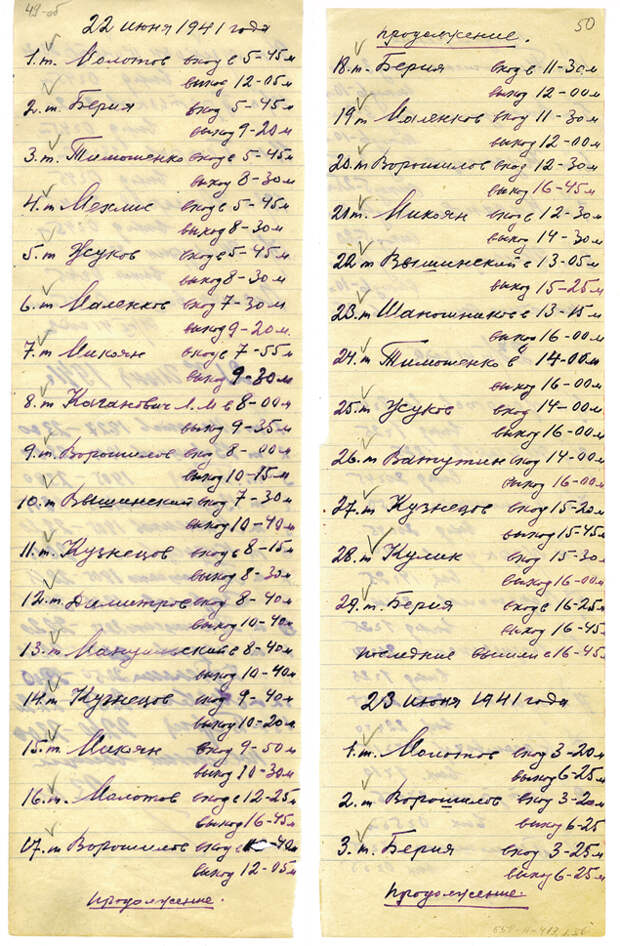 49-об
22 июня 1941 года
1. т. Молотов вход в 5-45м
выход 12-05м
2. т. Берия вход 5-45м
выход 9-20м
3. т. Тимошенко вход в 5-45м
выход 8-30м
4. т Мехлис вход в 5-45м
выход 8-30м
5. т Жуков вход в 5-45м
выход 8-30м
6. т Маленков вход 7-30м
выход 9-20м.
7. т Микоян вход в 7-55м
выход 9-30м
8. т Каганович Л.М в 8-00м
выход 9-35м
9. т Ворошилов вход 8-00м
выход 10-15м
10. т Вышинский вход 7-30м
выход 10-40м
11. т. Кузнецов вход в 8-15м
выход 8-30м
12. т Димитров вход 8-40м
выход 10-40м
13. т. Мануильский в 8-40м
выход 10-40м
14. т Кузнецов вход 9-40м
выход 10-20м
15. т. Микоян вход 9-50м
выход 10-30м
16. т. Молотов вход в 12-25м
выход 16-45м
17. т Ворошилов вход в -40м
выход 12-05м
продолжение.
50
продолжение.
18. т. Берия вход в 11-30м
выход 12-00м
19 т Маленков вход 11-30м
выход 12-00м
20. т Ворошилов вход 12-30м
выход 16-45м
21 т. Микоян вход в 12-30м
выход 14-30м
22. т Вышинский в 13-05м
выход 15-25м
23. т Шапошников в 13-15м
выход 16-00м
24. т Тимошенко в 14-00м
выход 16-00м
25. т Жуков вход 14-00м
выход 16-00м
26. т Ватутин вход 14-00м
выход 16-00м
27. т Кузнецов вход 15-20м
выход 15-45м
28. т Кулик вход 15-30м
выход 16-00м
29. т. Берия вход в 16-25м
выход 16-45м
последние вышли в 16-45м
23 июня 1941 года
1. т. Молотов вход 3-20м
выход 6-25м
2. т Ворошилов вход 3-20м
выход 6-25
3. т. Берия вход 3-25м
выход 6-25м
продолжение.